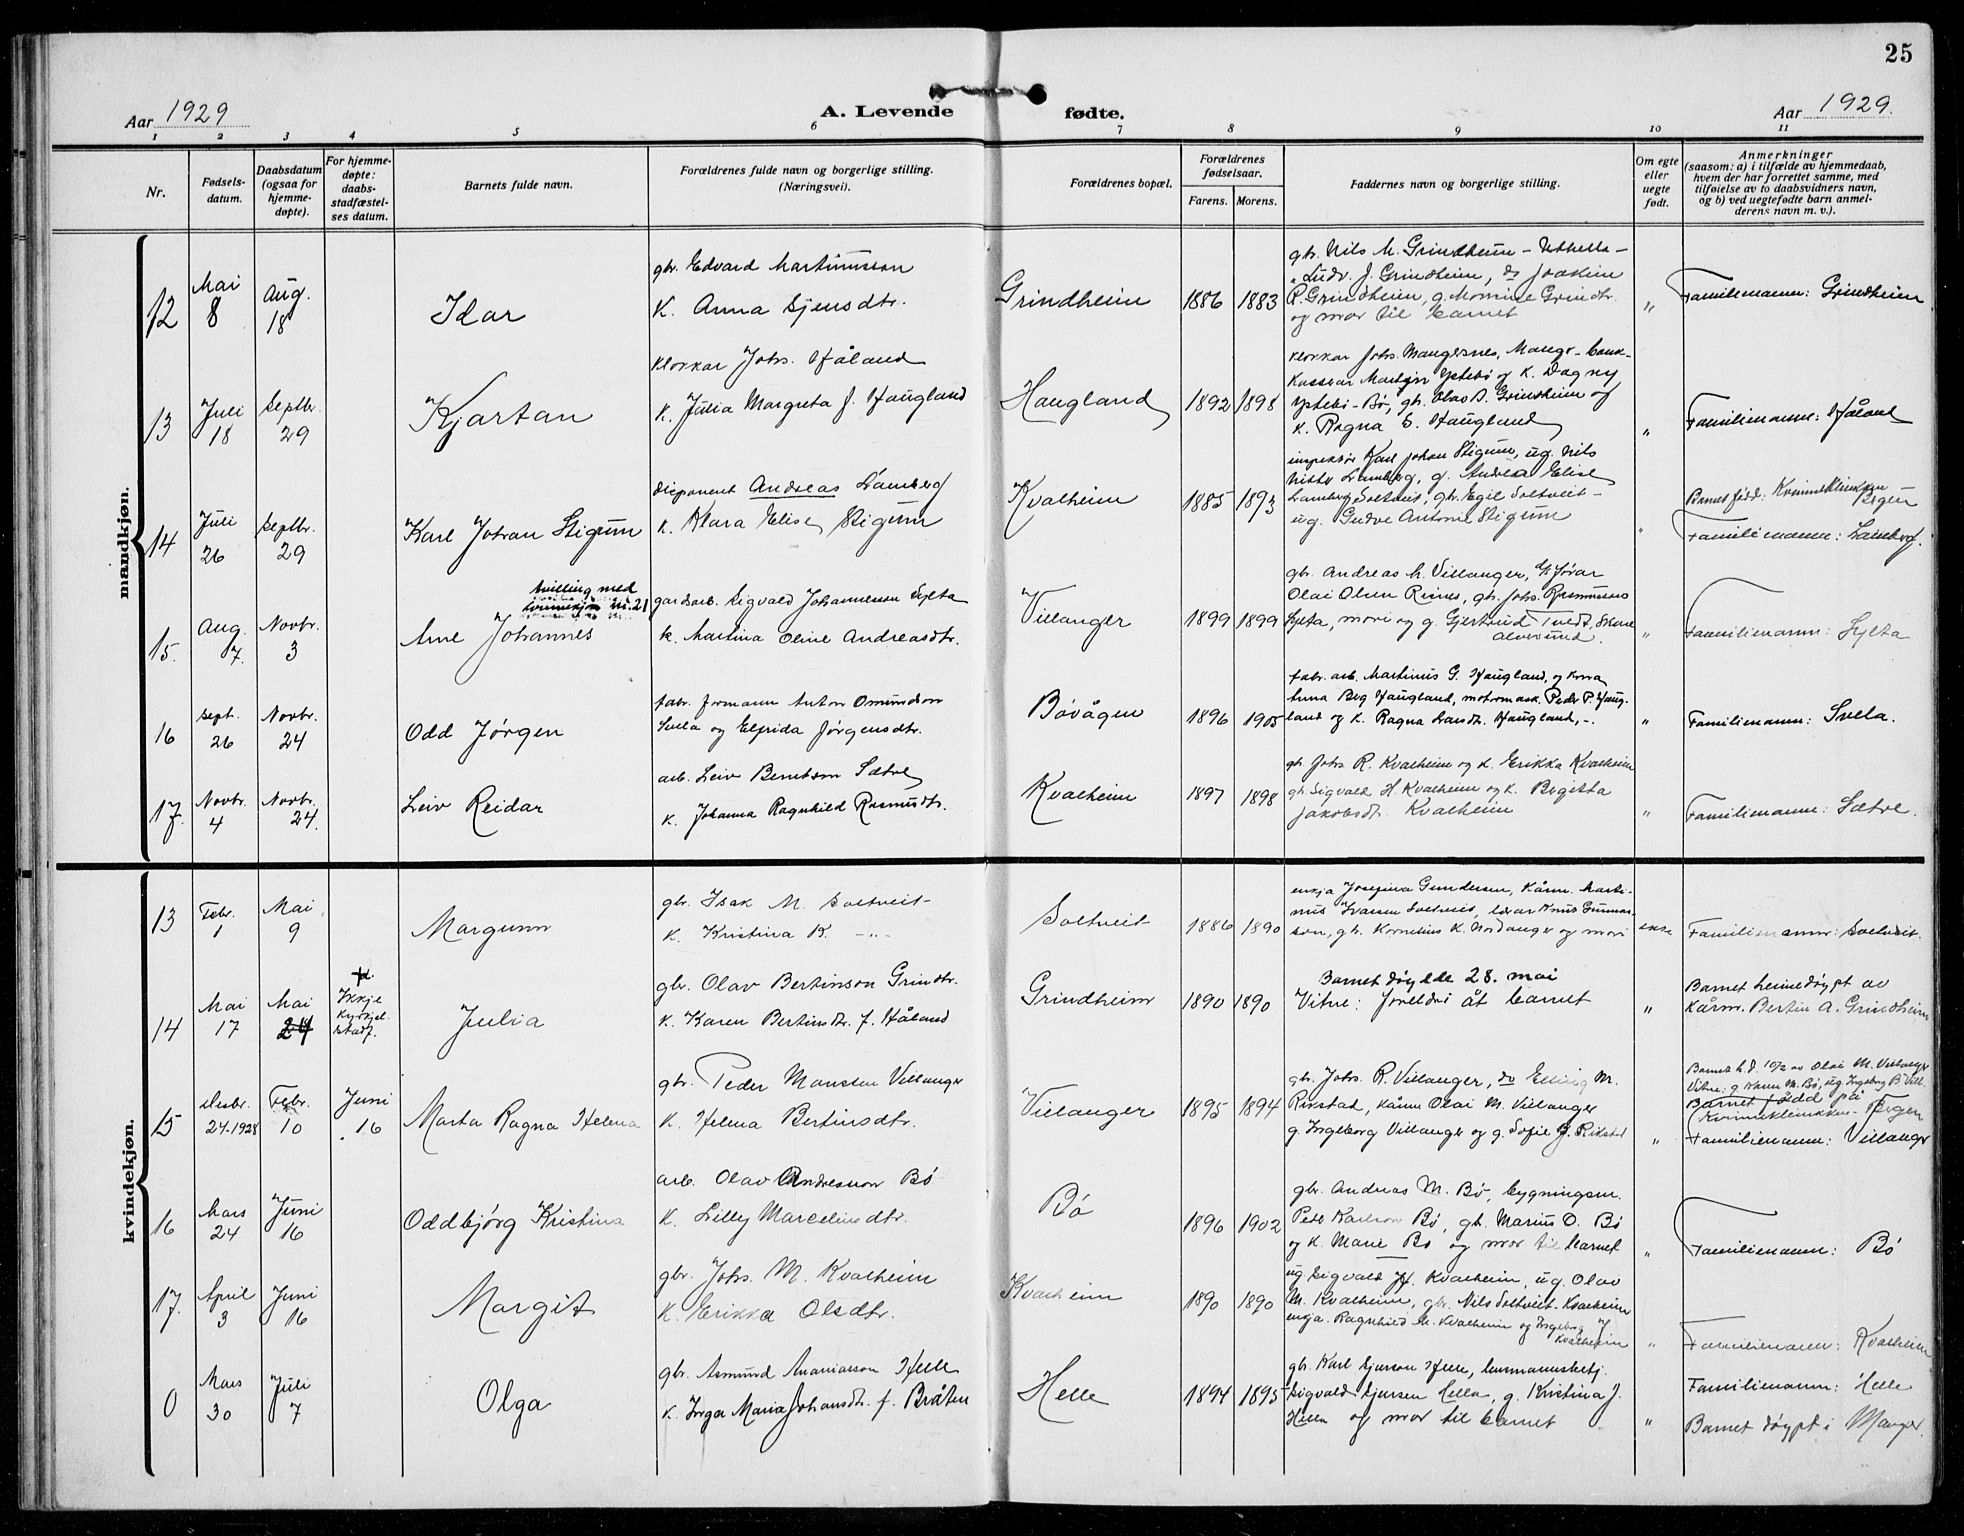 25
Aar 1929
A. Levende fødte.
Aar 1929.
1 2 3 4 5 6 7 8 9 10 11
Nr.
Fødsels-
datum.
Daabsdatum
(ogsaa for
hjemme-
døpte).
For hjemme-
døpte:
daabs-
stadfæstel-
ses datum.
Barnets fulde navn.
Forældrenes fulde navn og borgerlige stilling.
(Næringsvei).
Forældrenes bopæl.
Forældrenes
fødselsaar.
Farens. Morens.
Faddernes navn og borgerlige stilling.
Om egte
eller
uegte
født.
Anmerkninger
(saasom: a) i tilfælde av hjemmedaab,
hvem der har forrettet samme, med
tilføielse av to daabsvidners navn,
og b) ved uegtefødte barn anmel-
derens navn m. v.).
mandkjøn.
12
Mai
8
Aug.
18
Idar
gbr. Edvard Martinusson
K. Anna Gjensdtr.
Grindheim
1886 1883
gbr. Nils M. Grindheim
Ludv. J. Grindheim, do Joakim
R. Grindheim, g. Grindh.
og mor til barnet
"
Familienamn: Grindheim
13
Juli
18
Septbr.
29
Kjartan
Klokkar Johs. Håland
K. Julia Margreta f. Haugland
Haugland
1892 1898
Klokkar Johs. Mangersnes, Manger
og K. Dagny
Bø, gbr. Olav Grindheim og
K. Ragna Haugland
"
Familienamn: Håland
14
Juli
26
Septbr.
29
Karl Johan Stigum
disponent Andreas Lamberg
K. Klara Elise Stigum
Kvalheim
1885 1893
inspektør Karl Johan Stigum, ug. Nils
Lamberg, g. Andrea Elise
Lamberg Soltveit, gbr. Egil Soltveit -
ug. Antonie Stigum
"
Barnet fødd: Kvinneklinikken
Bergen
Familienamn: Lamberg.
15.
Aug.
7.
Novbr.
3
tvilling med
kvinnekjøn nr. 21
Arne Johannes
gardsarb. Sigvald Johannesson Sylta
K. Martina Oline Andreasdtr.
Villanger
1899 1899
gbr. Andreas M. Villanger,
Olai Olsen Risnes, gbr. Johs. Rasmussen
Sylta, mori og g. Gjertrud Tvedt,
Alversund.
"
Familienamn: Sylta
16
Sept.
26
Novbr.
24
Odd Jørgen
fabr. formann Anton Omundson
Svela og Elfrida Jørgensdtr.
Bøvågen
1896 1905
fabr. arb. Martinus G. Haugland, og kona
Anna Berg Haugland, motormask. Peder P. Haug-
land og K. Ragna Haugland, -.
"
Familienamn: Svela.
17.
Novbr.
4
Novbr.
24.
Leiv Reidar
arb. Leiv Berntson Sætre
K. Johanna Ragnhild Rasmusdtr.
Kvalheim
1897 1898
gbr. Johs R. Kvalheim og K. Erikka Kvalheim
gbr. Sigvald H. Kvalheim og K. Birgitta
Jakobsdt. Kvalheim
"
Familienamn: Sætre.
kvindekjøn.
13
Febr.
1
Mai
9
Margunn
gbr. Isak M. Soltveit
K. Kristina K. -"-
Soltveit
1886 1890
enkja Josefina Gundersen, kårm. Marti-
nus Ivarsen Soltveit, lærar Knut Gunnar-
son, gbr. Kornelius K. Nordanger og mori
ekte
Familienamn: Soltveit.
14
Mai
17
Mai
24
Ikkje
kyrkjel.
stadf.
Julia
gbr. Olav Bertinson Grindh.
K. Karen Bertinsdtr. f. Håland
Grindheim
1890 1890
Barnet døydde 28. mai
Vitne: foreldri åt barnet
"
Barnet heimedøypt av
kårm. Bertin A. Grindheim
15
Desbr.
24-1928
Febr.
10
Juni
16
Marta Ragna Helena
gbr. Peder Monsen Villanger
K. Helena Bertinsdtr.
Villanger
1895 1894
gbr. Johs. R. Villanger, do Elling M.
Rikstad, kårm Olai M. Villanger
g. Ingeborg Villanger og g. Sofie J. Rikstad
"
Barnet h.d. 10/2 av Olai M. Villanger
Vitne: g. M. Bø, ug. Ingeborg B. Vill.
Barnet fødd på
Kvinneklinikken - Bergen
Familienamn: Villanger
16
Mars
24
Juni
16
Oddbjørg Kristina
arb. Olav Andresson Bø
K. Lilly Marceliusdtr.
Bø
1896 1902
gbr. Andreas M. Bø, bygningsm.
Peder Karlson Bø, gbr. Marius O. Bø
og K. Marie Bø og mor til barnet
"
Familienamn: Bø
17.
April
3
Juni
16
Margit
gbr. Johs. M. Kvalheim
K. Erikka Olsdtr.
Kvalheim
1890 1890
ug. Sigvald H. Kvalheim, ug. Olav
M. Kvalheim, gbr. Nils Soltveit-Kvalheim
enkja. Ragnhild M. Kvalheim og Ingeborg J.
Kvalheim
"
Familienamn: Kvalheim
0
Mars
30
Juli
7
Olga
gbr. Asmund Ananiasson Helle
K. Inga Maria Johansdtr. f. Bråten
Helle
1894 1895
gbr. Karl Gjerson Helle, husmannsketj.
Sigvald Gjersen Helle, g. Kristina J.
Helle og mor til barnet
"
Familienamn: Helle
Barnet døypt i Manger.